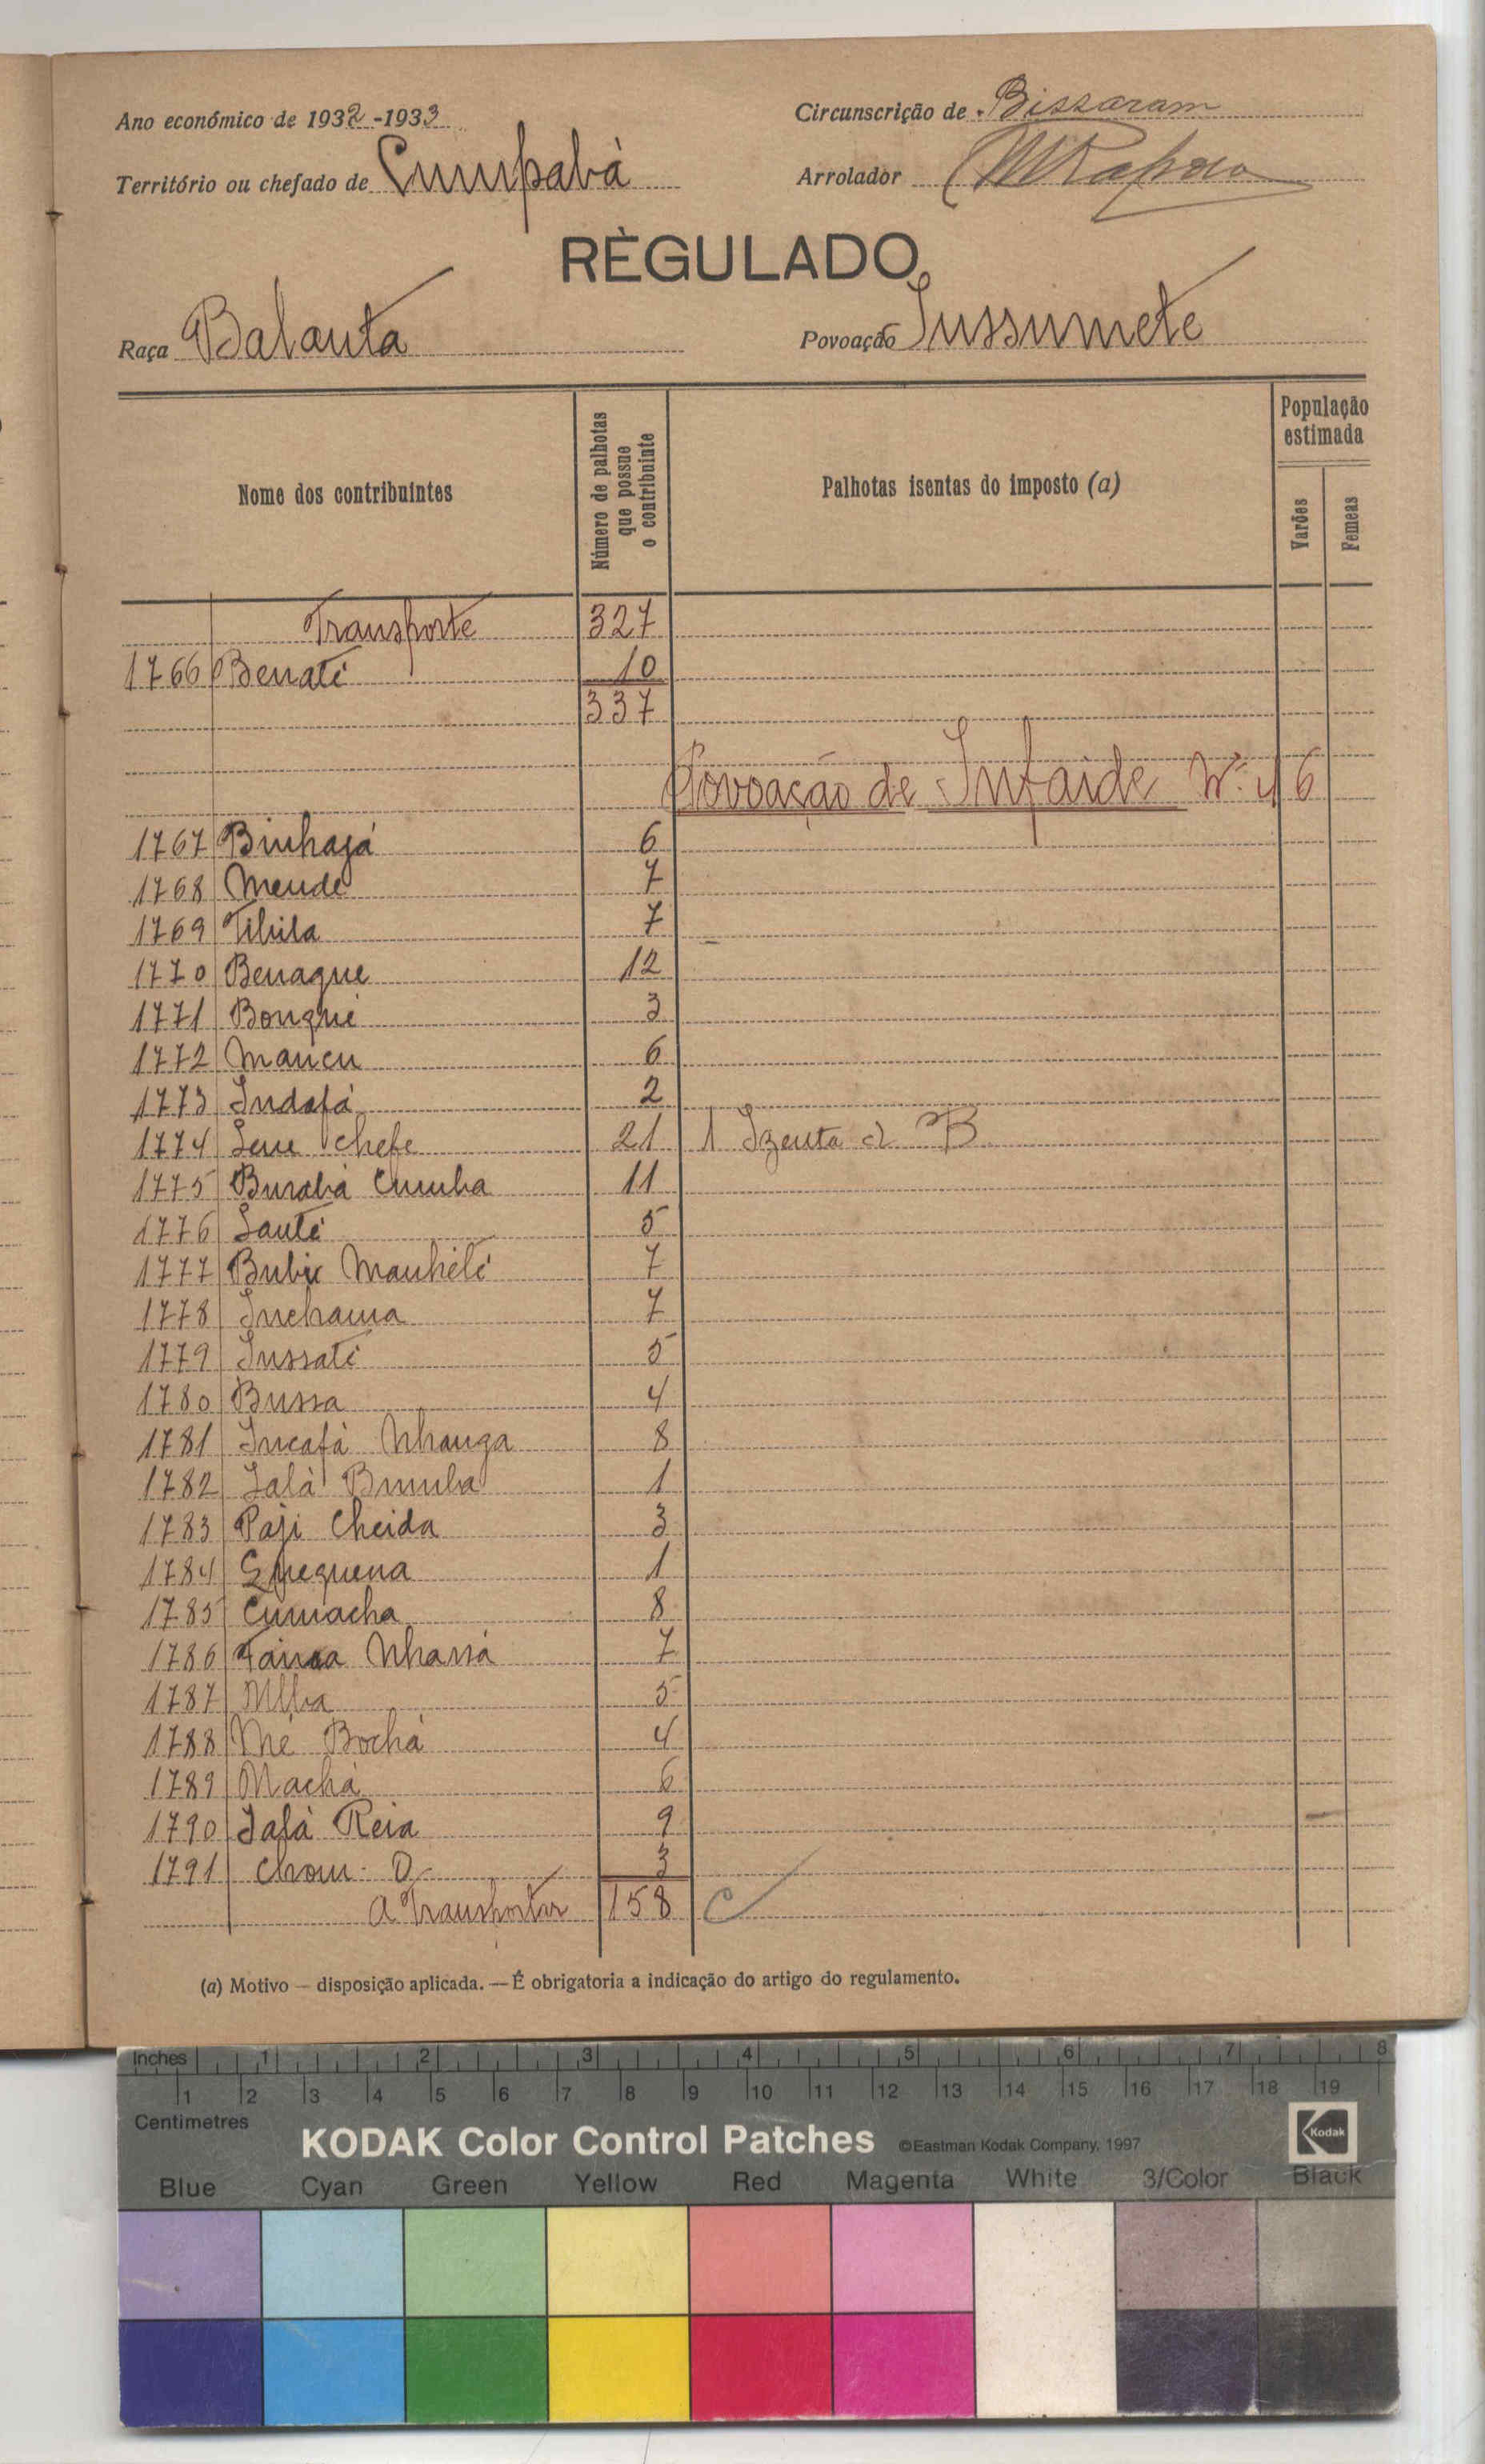 Ano económico de 1932-1933
Circunscrição de Bissaram
Território ou chefado de Cumpabá
Arrolador MRaposo
RÈGULADO
Raça Balanta
Povoação Jussumete
Nome dos contribuintes
Número de palhotas que possue o contribuinte
Palhotas isentas do imposto (a)
População estimada
Varões
Femeas
Transporte 327
1766 Benati 10
337
Povoação de Infaide Nº 46
1767 Binhagá 6
1768 Mende 7
1769 Tibila 7
1770 Benague 12
1771 Bongné 3
1772 Mancu 6
1773 Indafá 2
1774 Lene chefe 21 1 Izenta a B
1775 Burabá Cumba 11
1776 Santi 5
1777 Bubu Manhélé 7
1778 Inchama 7
1779 Iussati 5
1780 Bussa 4
1781 Incafá Nhanga 8
1782 Ialá Bumba 1
1783 Paji Cheida 3
1784 Quequena 1
1785 Cumacha 8
1786 Fanca Nhassá 7
1787 Mbba 5
1788 Mé Bochá 4
1789 Machá 6
1790 Iafá Reia 9
1791 Chom D 3
A Transportar 158 C
(a) Motivo — disposição aplicada. — É obrigatoria a indicação do artigo do regulamento.
Inches 1 2 3 4 5 6 7 8
1 2 3 4 5 6 7 8 9 10 11 12 13 14 15 16 17 18 19
Centimetres
KODAK Color Control Patches ©Eastman Kodak Company, 1997 Kodak
Blue Cyan Green Yellow Red Magenta White 3/Color Black